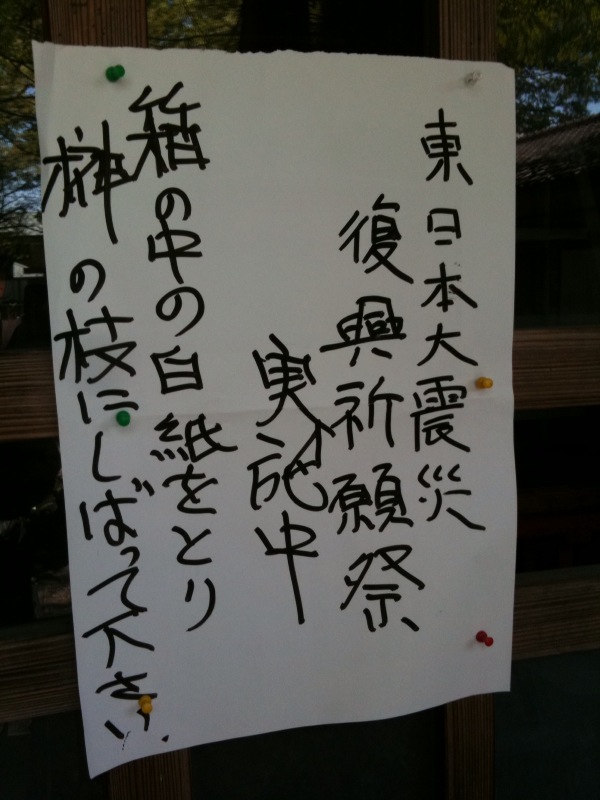 東日本大震災
復興祈願祭
実施中
箱の中の白紙をとり
榊の枝にしばって下さい